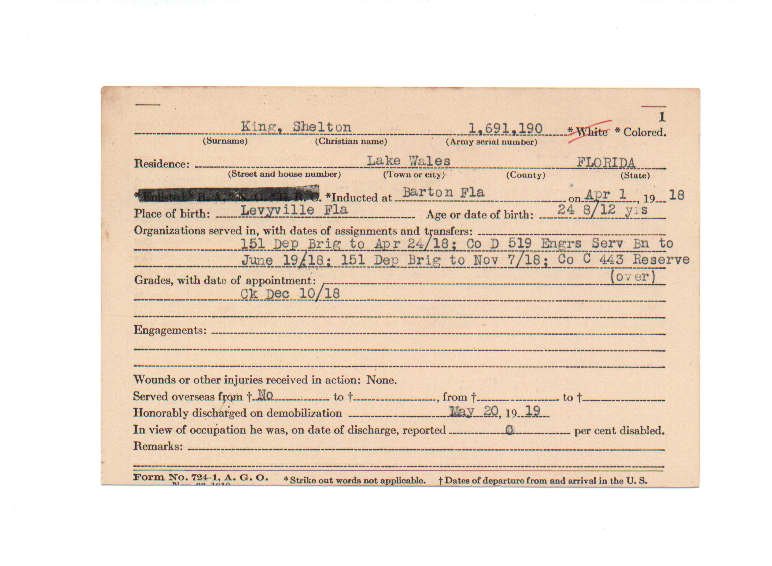 1
King, Shelton 1,691,190 * White * Colored.
(Surname) (Christian name) (Army serial number)
Residence: Lake Wales FLORIDA
(Street and house number) (Town or city) (County) (State)
*Inducted at Barton Fla on Apr 1, 19 18
Place of birth: Levyville Fla Age or date of birth: 24 8/12 yrs
Organizations served in, with dates of assignments and transfers:
151 Dep Brig to Apr 24/18; Co D 519 Engrs Serv Bn to
June 19/18; 151 Dep Brig to Nov 7/18; Co C 443 Reserve
Grades, with date of appointment: (over)
Ck Dec 10/18
Engagements:
Wounds or other injuries received in action: None.
Served overseas from † No to †, from † to †
Honorably discharged on demobilization May 20, 19 19
In view of occupation he was, on date of discharge, reported 0 per cent disabled.
Remarks:
Form No. 724-1, A. G. O. * Strike out words not applicable. † Dates of departure from and arrival in the U. S.